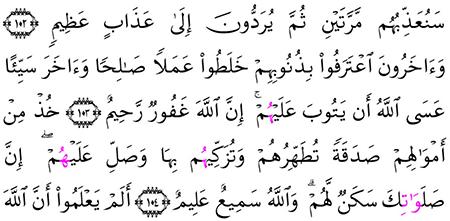 سَنُعَذِّبُهُم مَّرَّتَيْنِ ثُمَّ يُرَدُّونَ إِلَىٰ عَذَابٍ عَظِيمٖ ١٠٢
وَءَاخَرُونَ ٱعْتَرَفُواْ بِذُنُوبِهِمْ خَلَطُواْ عَمَلٗا صَٰلِحٗا وَءَاخَرَ سَيِّئًا
عَسَى ٱللَّهُ أَن يَتُوبَ عَلَيْهُمْۚ إِنَّ ٱللَّهَ غَفُورٞ رَّحِيمٌ ١٠٣ خُذْ مِنْ
أَمْوَٰلِهِمْ صَدَقَةٗ تُطَهِّرُهُمْ وَتُزَكِّيهُم بِهَا وَصَلِّ عَلَيْهُمْۖ إِنَّ
صَلَوَٰتِكَ سَكَنٞ لَّهُمْۗ وَٱللَّهُ سَمِيعٌ عَلِيمٌ ١٠٤ أَلَمْ يَعْلَمُواْ أَنَّ ٱللَّهَ